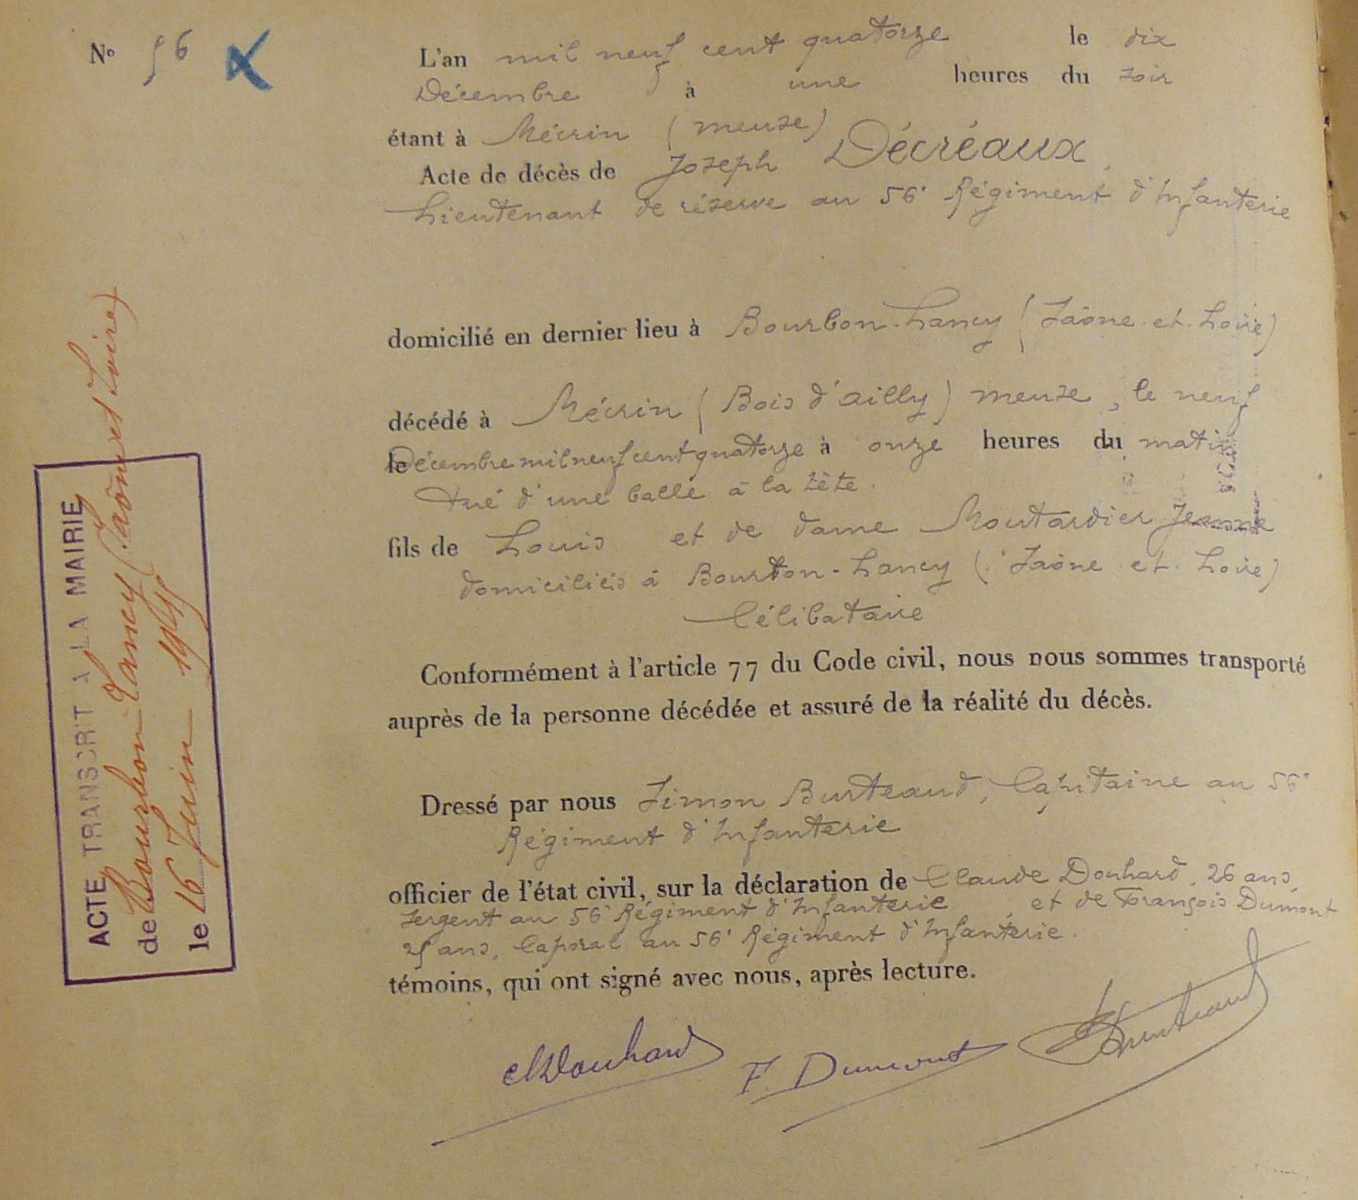 No 56
L'an mil neuf cent quatorze le dix
Décembre à une heures du soir
étant à Mécrin (meuse)
Acte de décès de Joseph Décréaux,
Lieutenant de réserve au 56e Régiment d'Infanterie
domicilié en dernier lieu à Bourbon-Lancy (Saône-et-Loire)
décédé à Mécrin (Bois d'ailly) meuse, le neuf
le Décembre mil neuf cent quatorze à onze heures du matin
tué d'une balle à la tête.
fils de Louis et de dame Moutardier Jeanne
domiciliés à Bourbon-Lancy (Saône-et-Loire)
Célibataire
Conformément à l'article 77 du Code civil, nous nous sommes transporté
auprès de la personne décédée et assuré de la réalité du décès.
Dressé par nous Simon Burteaud, Capitaine au 56e
Régiment d'Infanterie
officier de l'état civil, sur la déclaration de Claude Douhard, 26 ans,
sergent au 56e Régiment d'Infanterie, et de François Dumont
25 ans, Caporal au 56e Régiment d'Infanterie.
témoins, qui ont signé avec nous, après lecture.
Douhard F. Dumont Burteaud
ACTE TRANSCRIT A LA MAIRIE
de Bourbon-Lancy (Saône et Loire)
le 16 Juin